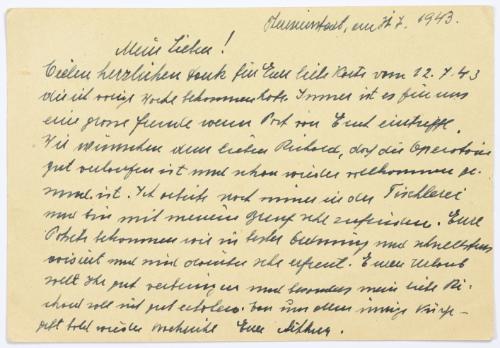 Theresienstadt, am 31.7. 1943.
Meine Lieben!
Vielen herzlichen Dank für Eure liebe Karte vom 12.7.43
die ich vorige Woche bekommen habe. Immer ist es für uns
eine grosse Freude wenn Post von Euch eintrifft.
Wir wünschen dem lieben Richard, dass die Operation
gut verlaufen ist und schon wieder vollkommen ge-
sund ist. Ich arbeite noch immer in der Tischlerei
und bin mit meinem Beruf sehr zufrieden. Eure
Pakete bekommen wir in bester Ordnung und schnellstens
avisiert und sind darüber sehr erfreut. Euren Urlaub
sollt Ihr gut verbringen und besonders mein liebe Ri-
chard soll sich gut erholen. Von uns allen innige Küsse
bald wieder Euer Arthur.